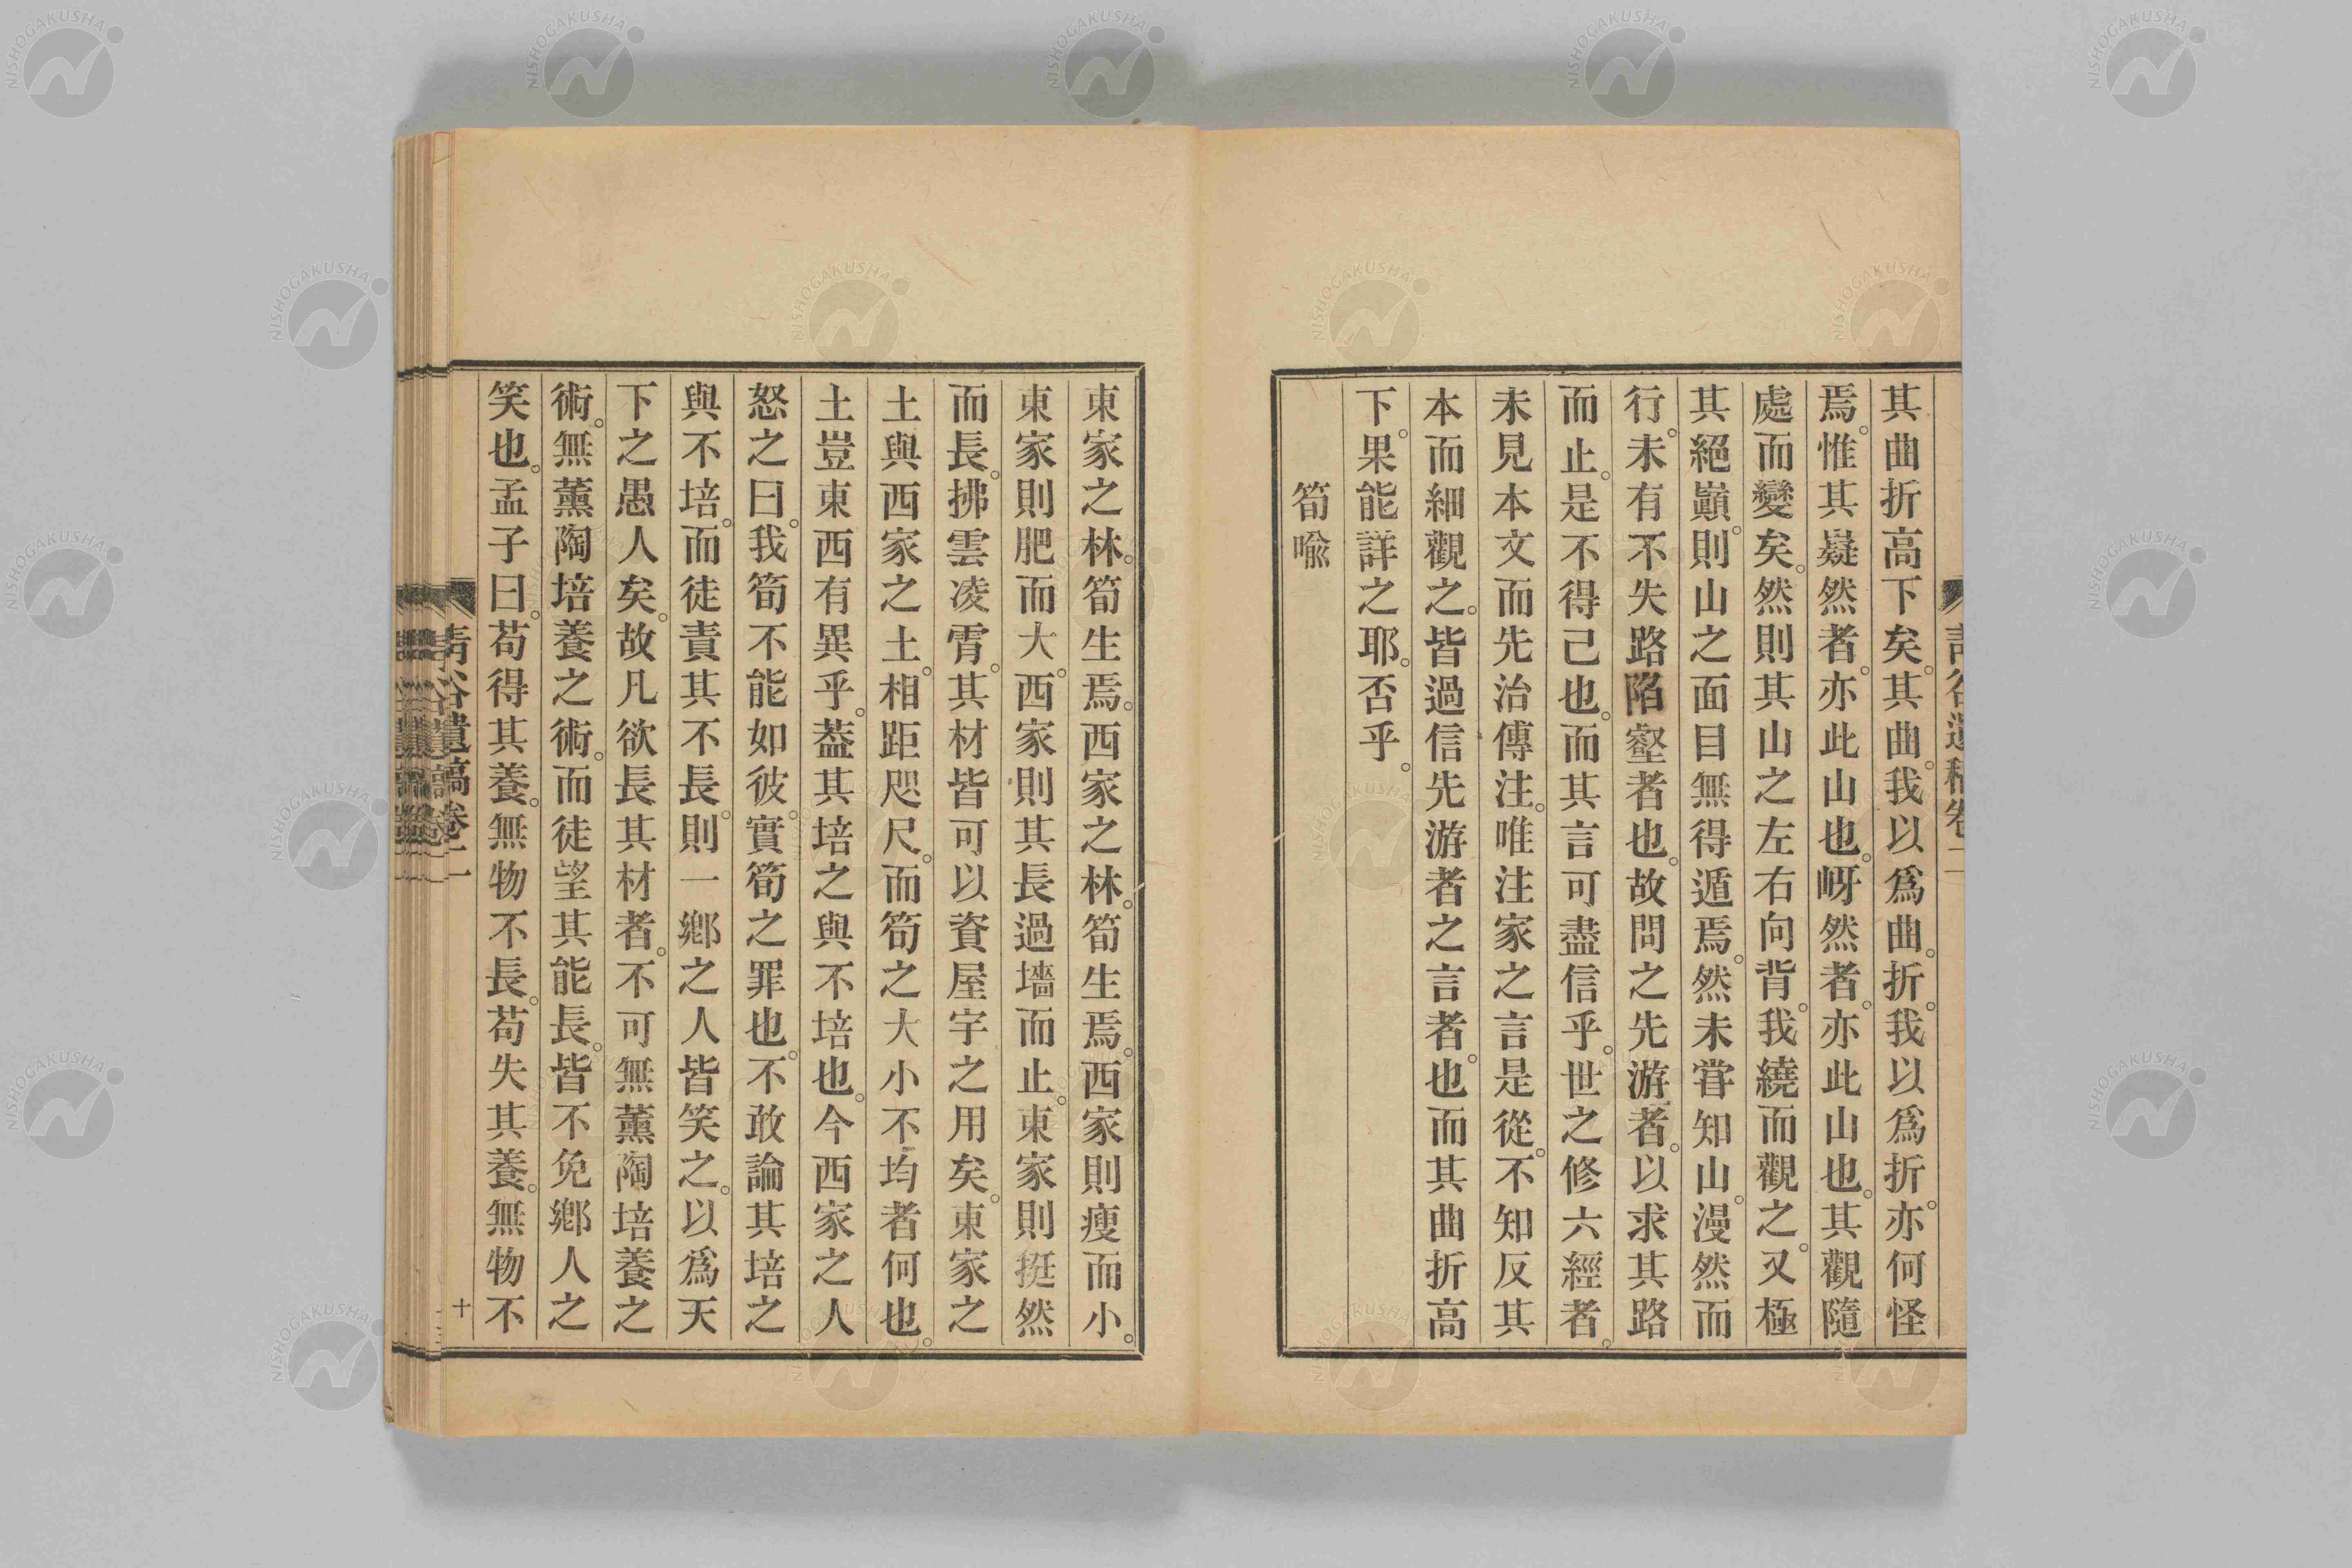 其曲折高下矣。其曲。我以爲曲。折。我以爲折。亦何怪
焉。惟其嶷然者。亦此山也。岈然者。亦此山也。其觀隨
處而變矣。然則其山之左右向背。我繞而觀之。又極
其絕巓。則山之面目無得遁焉。然未甞知山。漫然而
行。未有不失路陷壑者也。故問之先游者。以求其路
而止。是不得己也。而其言可盡信乎。世之修六經者。
未見本文而先治傳注。唯注家之言是從。不知反其
本而細觀之。皆過信先游者之言者也。而其曲折高
下。果能詳之耶。否乎。
筍喩
東家之林。筍生焉。西家之林。筍生焉。西家則瘦而小。
東家則肥而大。西家則其長過墻而止。東家則挺然
而長。拂雲凌霄。其材皆可以資屋宇之用矣。東家之
土與西家之土。相距咫尺。而筍之大小不均者何也。
土豈東西有異乎。葢其培之與不培也。今西家之人
怒之曰。我筍不能如彼。實筍之罪也。不敢論其培之
與不培。而徒責其不長。則一鄕之人皆笑之。以爲天
下之愚人矣。故凡欲長其材者。不可無薰陶培養之
術。無薰陶培養之術。而徒望其能長。皆不免鄕人之
笑也。孟子曰。苟得其養。無物不長。苟失其養。無物不
靑谷遺稿卷二
十
NISHOGAKUSHA